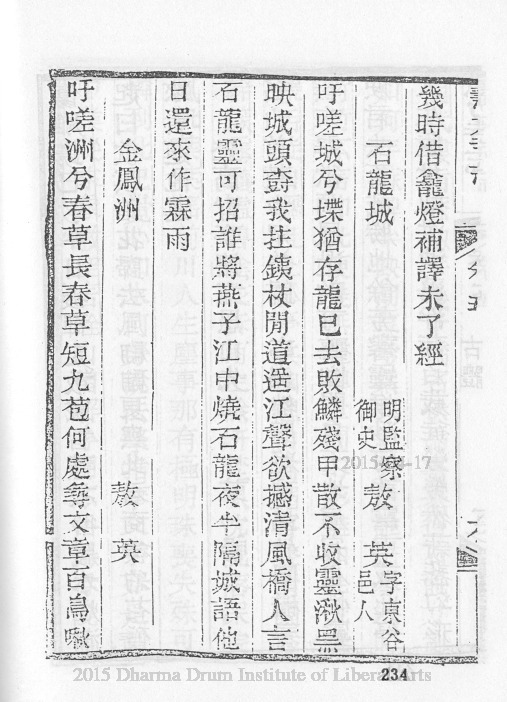 幾時借龕燈補譯未了經
石龍城 明監察御史敖英字東谷邑人
吁嗟城兮堞猶存龍已去敗鱗殘甲散不收靈湫黑
映城頭樹我拄鐵杖閒道遥江聲欲撼清風橋人言
石龍靈可招誰將燕子江中燒石龍夜半隔城語他
日還來作霖雨
金鳳洲 敖英
吁嗟洲兮春草長春草短九苞何處尋文章百鳥啾
2015-04-17
234
2015 Dharma Drum Institute of Liberal Arts